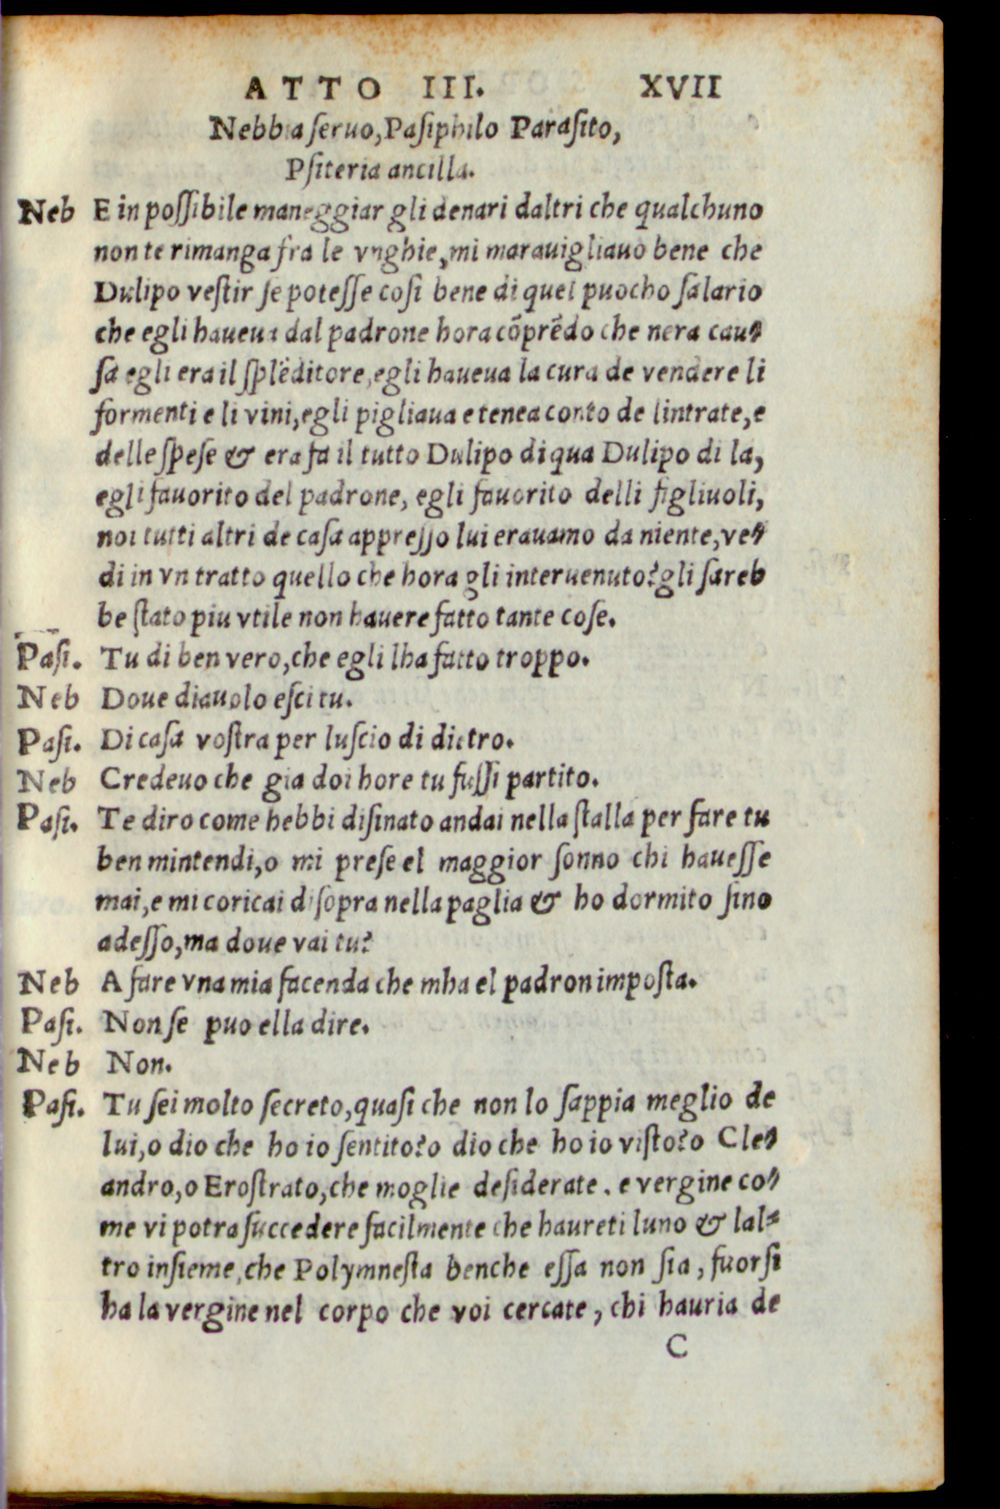 ATTO III. XVII
Nebbia ſeruo, Paſiphilo Paraſito,
Pſiteria ancilla.
Neb E in poſſibile maneggiar gli denari daltri che qualchuno
non te rimanga fra le vnghie, mi marauigliauo bene che
Dulipo veſtir ſe poteſſe coſi bene di quel puocho ſalario
che egli haueua dal padrone hora cõprẽdo che nera cau⸗
ſa egli era il ſplẽditore, egli haueua la cura de vendere li
formenti e li vini, egli pigliaua e tenea conto de lintrate, e
delle ſpeſe & era fa il tutto Dulipo di qua Dulipo di la,
egli fauorito del padrone, egli fauorito delli figliuoli,
noi tutti altri de caſa appreſſo lui erauamo da niente, ve⸗
di in vn tratto quello che hora gli interuenuto? gli ſareb
be ſtato piu vtile non hauere fatto tante coſe.
Paſi. Tu di ben vero, che egli lha fatto troppo.
Neb Doue diauolo eſci tu.
Paſi. Di caſa voſtra per luſcio di dietro.
Neb Credeuo che gia doi hore tu fuſſi partito.
Paſi. Te diro come hebbi diſinato andai nella ſtalla per fare tu
ben mintendi, o mi preſe el maggior ſonno chi haueſſe
mai, e mi coricai di ſopra nella paglia & ho dormito ſino
adeſſo, ma doue vai tu?
Neb A fare vna mia facenda che mha el padron impoſta.
Paſi. Non ſe puo ella dire.
Neb Non.
Paſi. Tu ſei molto ſecreto, quaſi che non lo ſappia meglio de
lui, o dio che ho io ſentito? o dio che ho io viſto? o Cle⸗
andro, o Eroſtrato, che moglie deſiderate. e vergine co⸗
me vi potra ſuccedere facilmente che haureti luno & lal⸗
tro inſieme, che Polymneſta benche eſſa non ſia, fuorſi
ha la vergine nel corpo che voi cercate, chi hauria de
C